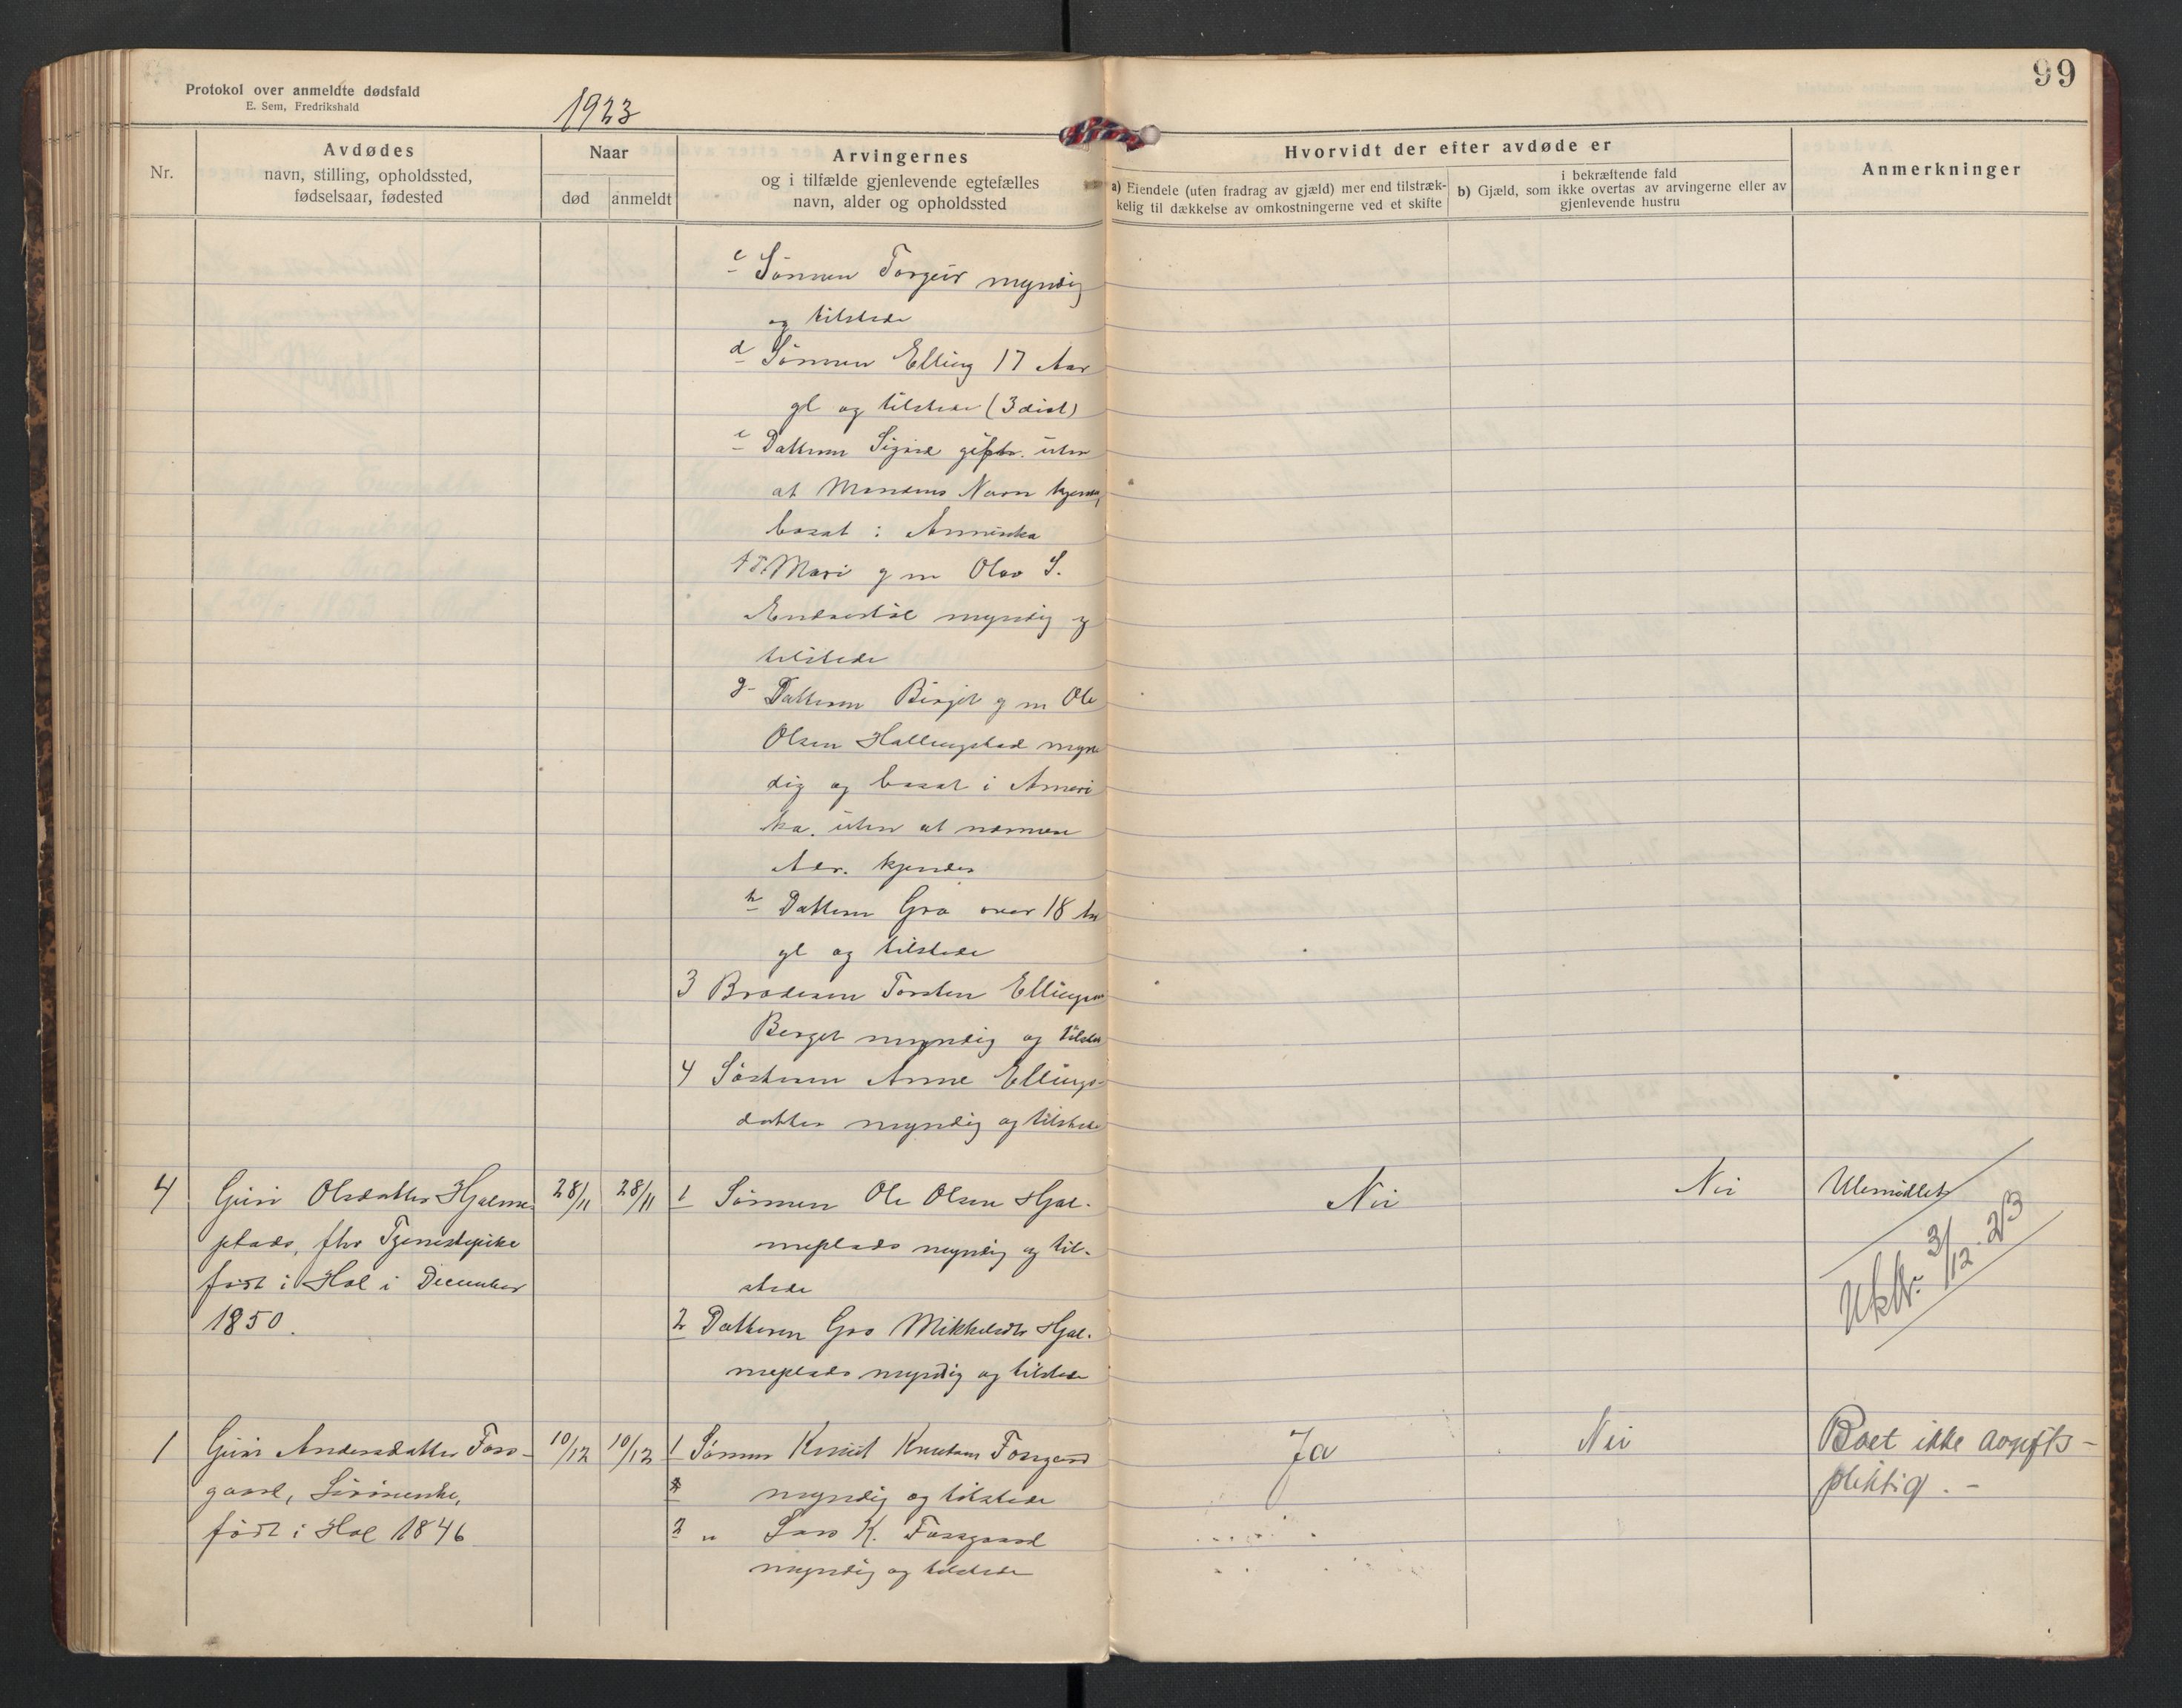 Protokol over anmeldte dødsfald
E. Sem, Fredrikshald
1923
99
Nr.
Avdødes
navn, stilling, opholdssted,
fødselsaar, fødested
Naar
død
anmeldt
Arvingernes
og i tilfælde gjenlevende egtefælles
navn, alder og opholdssted
Hvorvidt der efter avdøde er
a) Eiendele (uten fradrag av gjæld) mer end tilstræk-
kelig til dækkelse av omkostningerne ved et skifte
i bekræftende fald
b) Gjæld, som ikke overtas av arvingerne eller av
gjenlevende hustru
Anmerkninger
c Sönnen Torgeir myndig
og tilstede
d Sönnen Elling 17 Aar
gl og tilstede (3 dist)
e Datteren Sigrid gift. uten
at Mandens Navn kjendes,
bosat i Amerika
f D. Mari g m Olav S.
myndig og
tilstede
g Datteren Birgit g m Ole
Olsen Hallingstad myn
dig og bosat i Ameri
ka. uten at nærmere
Adr. kjendes
h Datteren Gro over 18 Aar
gl og tilstede
3 Broderen Torsten Ellingsen
Berget myndig og tilstede
4 Sösteren Anne Ellings-
datter myndig og tilstede
4
Guri Olsdatter Hjalme
plads, fhv Tjenestepike
født i Hol i December
1850.
28/11
28/11
1 Sönnen Ole Olsen Hjal-
meplads myndig og til-
stede
2 Datteren Gro Mikkelsdtr Hjal-
meplads myndig og tilstede
Nei
Nei
Ubemidlet
3/12 23
1
Guri Andersdatter Foss-
gaard,
født i Hol 1846
10/12
10/12
1 Sönnen Knut Knutsen Fossgaard
myndig og tilstede
2 " Lars K. Fossgaard
myndig og tilstede
Ja
Nei
Boet ikke avgifts-
pliktig. -